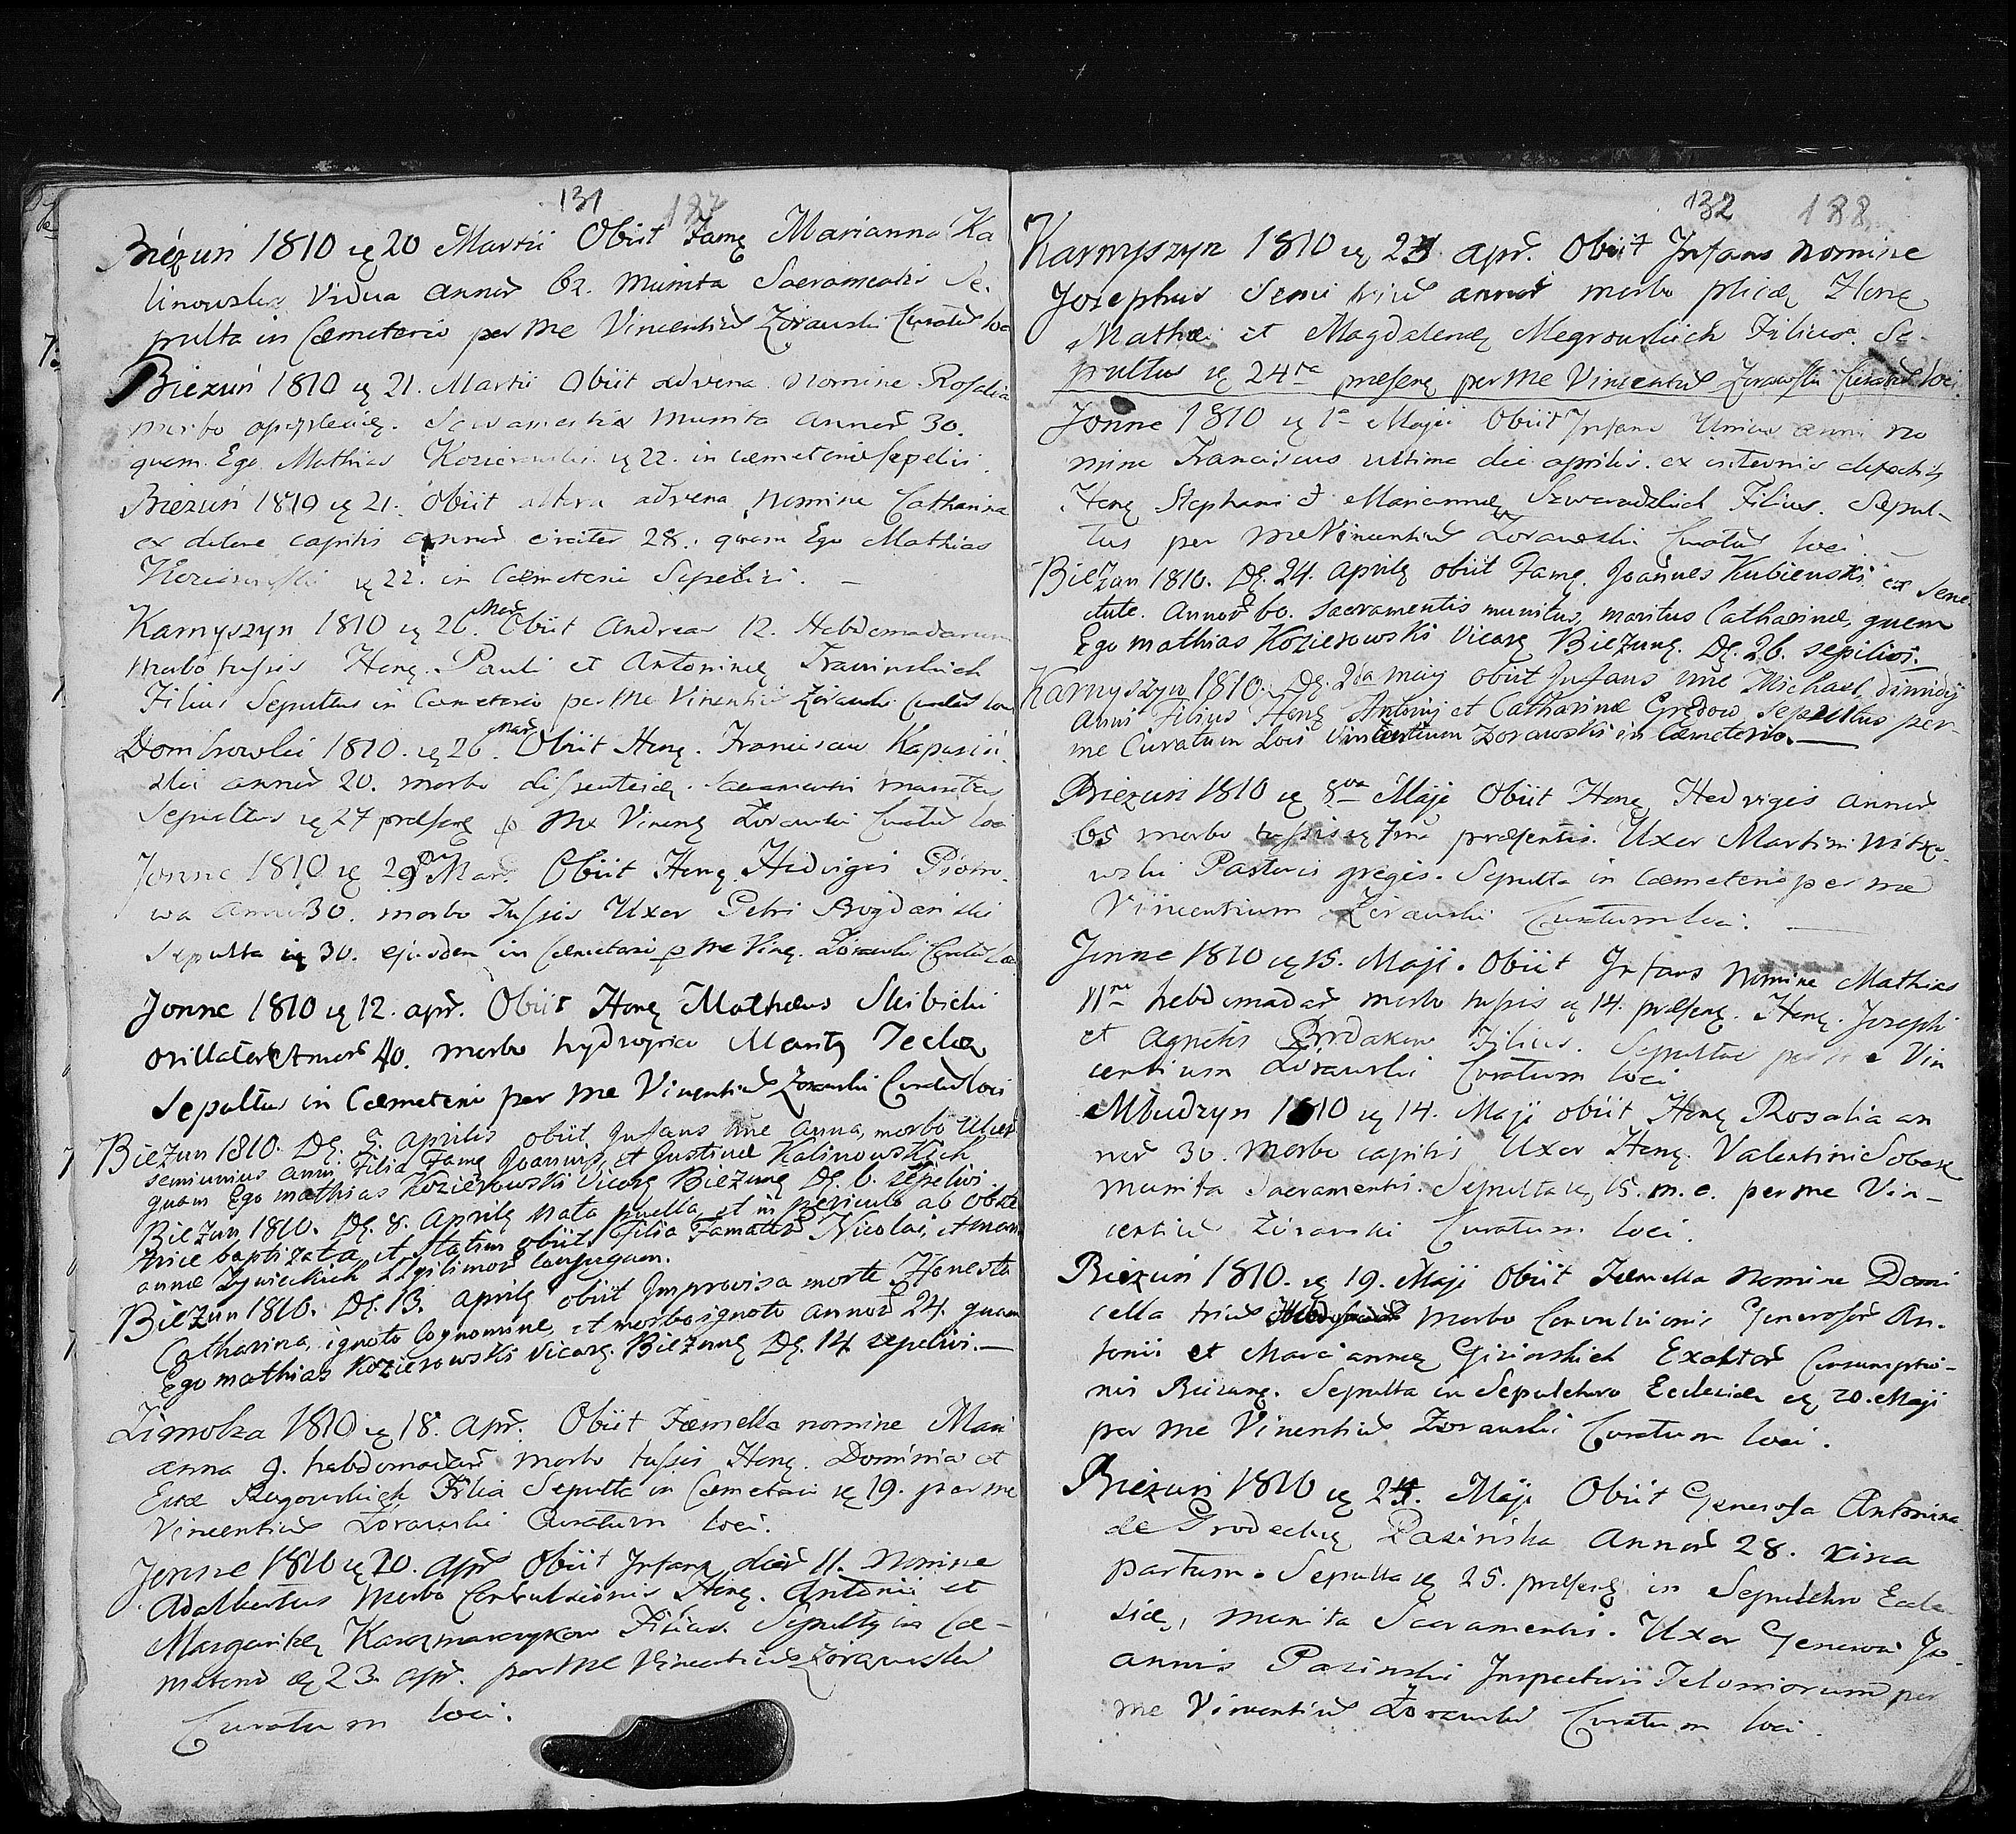 131 187
Biezuń 1810 ię 20 Martii Obiit Famę Marianna Ka
linowska Vidua annor̃ 62. Munita Sacramentis Se-
pulta in Cœmeterio per me Vincentiu͂ Zorawski Curatu͂ loci
Biezuń 1810 ię 21. Martii obiit advena nomine Rosalia
morbo apoplexię. Sacramentis munita annor̃ 30.
quam Ego Mathias Kozierowski ię 22. in cœmeterio sepelivi.
Biezuń 1810 ię 21. Obiit altera advena nomine Catharina
ex dolore capitis annor̃ circiter 28. quam Ego Mathias
Kozierowski ię 22. in Cœmeterio Sepelivi. —
Karnyszyn 1810 ię 26. Mar̃ Obiit Andreas 12. Hebdomadarum
morbo tussis Honę. Pauli et Antoninę
Filius Sepultus in Cœmeterio per me Vincentiu͂ Zorawski Curatu͂ loci
Dombrowki 1810. ię 26. Mar̃ Obiit Honę. Franciscus Kapusiń
ski annor̃ 20. morbo dissenterię. Sacramentis munitus
Sepultus ię 27 præsenę p me Vincenę Zorawski Curatu͂ loci
Jonne 1810 ię 29 Mar̃. Obiit Honę. Hedvigis
wa annor̃ 30. morbo Tussis Uxor Petri Bogdański
Sepulta ię 30. ejusdem in Cœmeterio p me Vinę. Zorawski Curatu͂ loci
Jonne 1810 ię 12. apr̃. Obiit Honę Mathæus Skibicki
Annor̃ 40. morbo hydropico Maritę Teclæ
Sepultus in Cœmeterio per me Vincentiu͂ Zorawski Curatu͂ loci
Biezun 1810. Dę. 5. aprilis obiit Infans nñe Anna, morbo
semiunius anni Filia Famę Joannis, et Justinæ Kalinowskich
quam Ego mathias Kozierowski Vicarę Biezunę Dę. 6. sepelivi.
Biezun 1810. Dę. 8. aprilę nata puella, et in periculo ab obste
trice baptizata, et statim obiit, Filia Famator̃ Nicolai, et Mari
annæ Zywieckich Legitimor̃ Conjugum.
Biezun 1810. Dę. 13. aprilę obiit Improvisa morte Honesta
Catharina, ignoto Cognomine, et morbo ignoto annor̃ 24. quam
Ego mathias Kozierowski Vicarę. Biezunę Dę. 14. sepelivi. —
Zimolza 1810 ię 18. apr̃. Obiit Fœmella nomine Mari
anna 9. hebdomadar̃ morbo tussis Honę. Dominici et
Evæ Rugowskich Filia Sepulta in Cœmeterio ię 19. per me
Vincentiu͂ Zorawski Curatum loci.
Jonne 1810 ię 20. apr̃ Obiit Infans dier̃ 11. nomine
Adalbertus morbo Convulsionis Honę. Antonii et
Margaritę Kaczmarczykow Filius. Sepultę in Cœ-
meterio ię 23. apr̃. per me Vincentiu͂ Zorawski
Curatum loci.
132 188
Karnyszyn 1810 ię 23. apr̃. Obiit Infans nomine
Josephus Semi triu͂ annor̃ morbo plicæ Honę
Mathæi et Magdalenę Megrowskich Filius. Se-
pultus ię 24ta præsenę per me Vincentiu͂ Zorawski Curatu͂ loci
Jonne 1810 ię 1a Maji Obiit Infans Unius anni no
mine Franciscus ultima die aprilis. ex internis defectis
Honę Stephani et Mariannę Filius. Sepul-
tus per me Vincentiu͂ Zorawski Curatu͂ loci. —
Biezun 1810. Dę. 24. aprilę obiit Famę. Joannes Kubienski ex Sene
ctute. annor̃ 60. sacramentis munitus, maritus Catharinæ, quem
Ego mathias Kozierowski Vicarę Biezunę. Dę. 26. sepelivi. —
Karnyszyn 1810. Dę. 2da may obiit Infans nñe Michael, dimidij
anni Filius Honę Antonij et Catharinæ Grędow sepultus per
me Curatum Loci Vincentium Zorawski in Cœmeterio. —
Biezuń 1810 ię 8va Maji Obiit Honę Hedvigis annor̃
65 morbo tussis ię 7ma præsentis. Uxor Martini
wski Pastoris gregis. Sepulta in Cœmeterio per me
Vincentium Zorawski Curatum loci. —
Jonne 1810 ię 15. Maji. Obiit Infans nomine Mathias
11ne hebdomadar̃ morbo tussis ię 14. præsenę. Honę. Josephi
et Agnetis Brodakow Filius. Sepultus per me Vin
centium Zorawski Curatum loci
Młudzyn 1810 ię 14. Maji obiit Honę Rosalia an
nor̃ 30. morbo capitis Uxor Honę. Valentini
munita Sacramentis. Sepulta ię 15. m. c. per me Vin-
centiu͂ Zorawski Curatum loci.
Biezuń 1810. ię 19. Maji Obiit Fœmella nomine Domi
cella triu͂ morbo Convulsionis Generosor̃ An-
tonii et Mariannę Girinskich Exactor̃ Consumptio-
nis Biezunę. Sepulta in Sepulchro Ecclesiæ ię 20. Maji
per me Vincentiu͂ Zorawski Curatum loci.
Biezuń 1810 ię 24. Maji Obiit Generosa Antonina
de Grodeckię Pazińska annor̃ 28. circa
partum. Sepulta ię 25. præsenę in Sepulchro Eccle
siæ, munita Sacramentis. Uxor Generosi Jo-
annis Pazinski Inspectoris Teloniorum per
me Vincentiu͂ Zorawski Curatum loci.